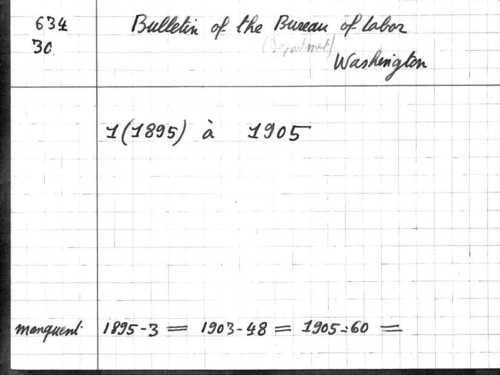 634
30
Bulletin of the Bureau of Labor
(Department)
Washington
1(1895) à 1905
manquent 1895-3 = 1903-48 = 1905-60 =